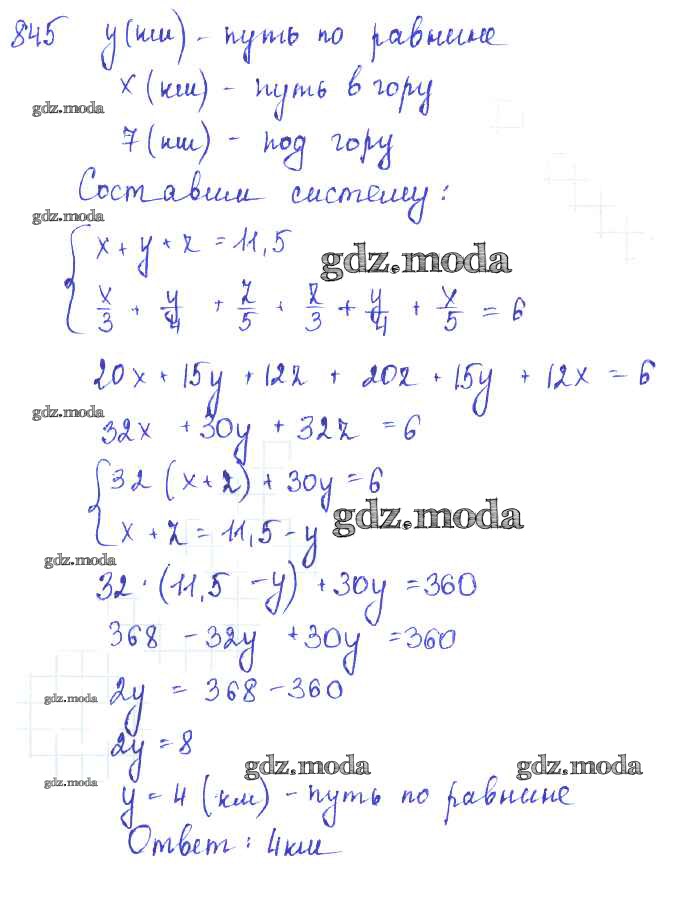 845 y(км) - путь по равнине
x (км) - путь в гору
gdz.moda
7 (км) - под гору
Составим систему:
gdz.moda
x + y + z = 11,5
gdz.moda
x/3 + y/4 + z/5 + z/3 + y/4 + x/5 = 6
20x + 15y + 12z + 20z + 15y + 12x = 6
gdz.moda
32x + 30y + 32z = 6
32 (x + z) + 30y = 6
gdz.moda
x + z = 11,5 - y
gdz.moda
32 · (11,5 - y) + 30y = 360
368 - 32y + 30y = 360
gdz.moda
2y = 368 - 360
2y = 8
gdz.moda gdz.moda
gdz.moda
y = 4 (км) - путь по равнине
Ответ: 4км